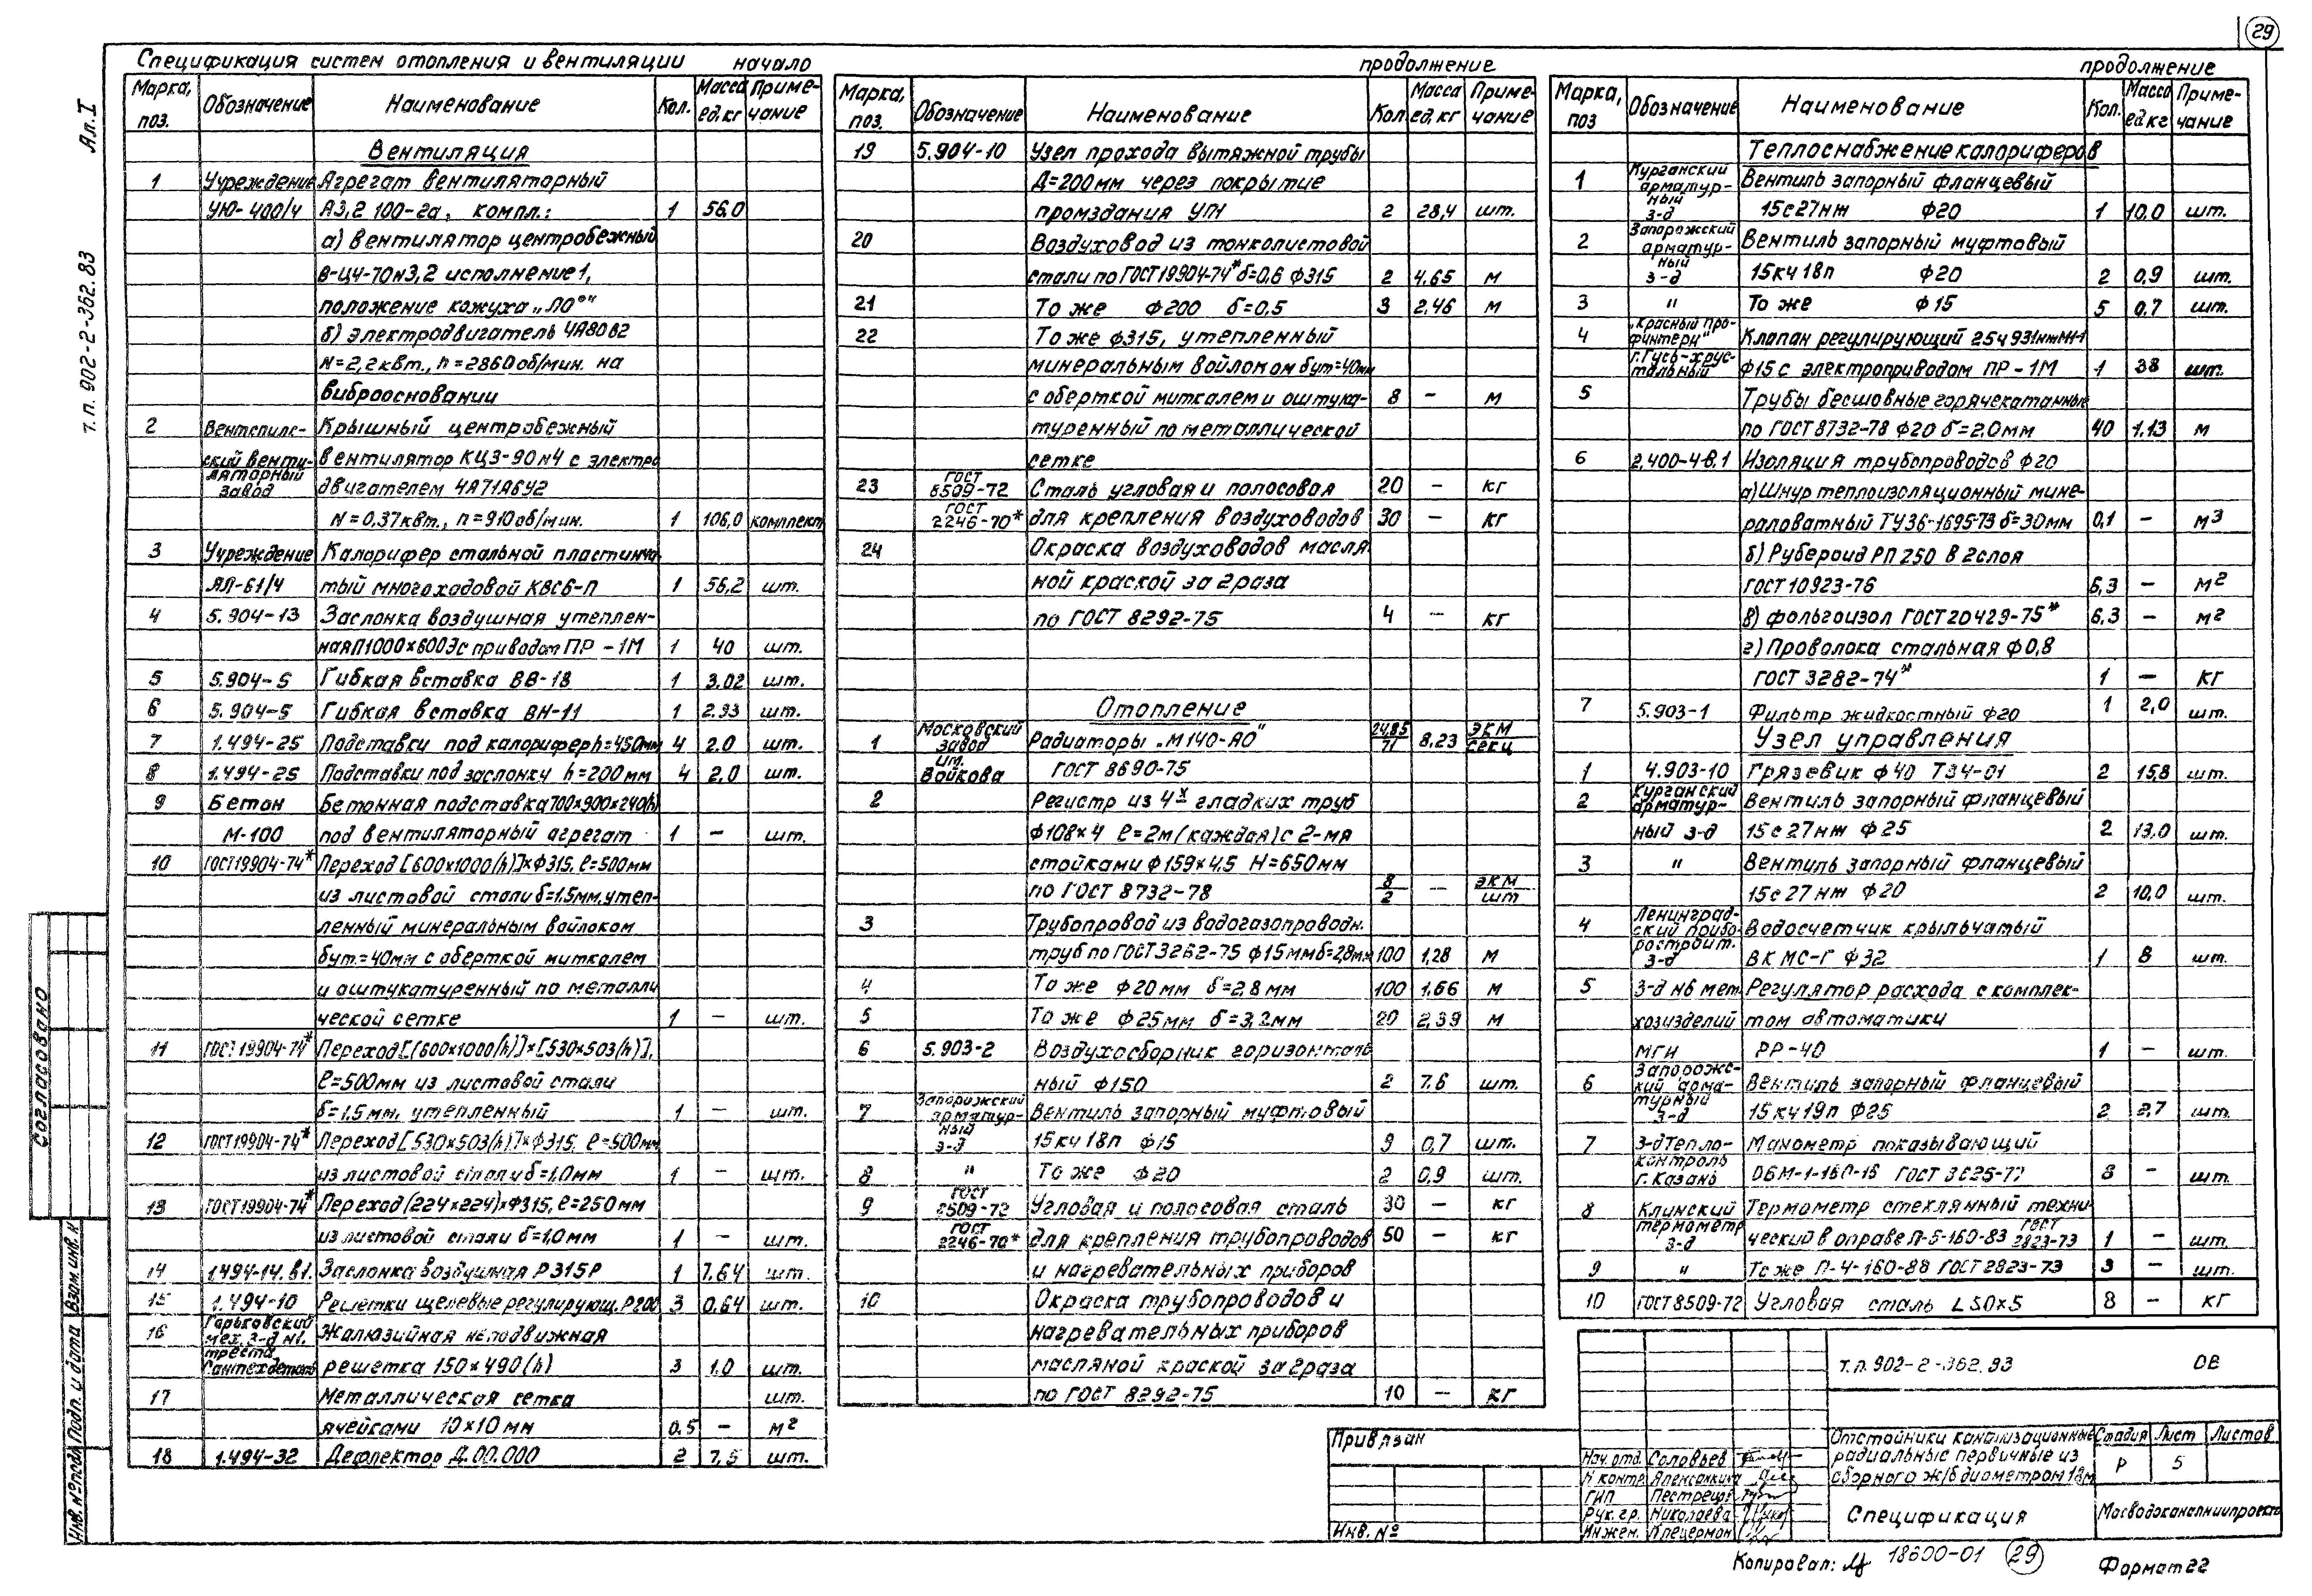 29
Спецификация систем отопления и вентиляции начало
Марка, поз. Обозначение Наименование Кол. Масса ед.кг Примечание
Вентиляция
1 Учреждение Агрегат вентиляторный
УЮ-400/4 А3,2 100-2а, компл.: 1 56.0
а) вентилятор центробежный
В-Ц4-70 N3,2 исполнение 1,
положение кожуха „Л0°"
б) электродвигатель 4А80В2
N=2,2квт., n=2860об/мин. на
виброосновании
2 Вентспилс- Крышный центробежный
ский венти- вентилятор КЦ3-90 N4 с электро
ляторный завод двигателем 4А71А6У2
N=0,37квт., n=910об/мин. 1 106,0 комплект
3 Учреждение Калорифер стальной пластинча
ЯЛ-61/4 тый многоходовой КВС6-П 1 56,2 шт.
4 5.904-13 Заслонка воздушная утеплен-
ная П1000×600Э с приводом ПР-1М 1 40 шт.
5 5.904-5 Гибкая вставка ВВ-18 1 3.02 шт.
6 5.904-5 Гибкая вставка ВН-11 1 2.93 шт.
7 1.494-25 Подставки под калорифер h=450мм 4 2.0 шт.
8 1.494-25 Подставки под заслонку h=200мм 4 2,0 шт.
9 Бетон Бетонная подставка 700×900×240(h)
М-100 под вентиляторный агрегат 1 – шт.
10 ГОСТ19904-74* Переход [600×1000(h)]×Ф315, ℓ=500мм
из листовой стали δ=1,5мм, утеп-
ленный минеральным войлоком
δут.=40мм с оберткой миткалем
и оштукатуренный по металли
ческой сетке 1 – шт.
11 ГОСТ19904-74* Переход [(600×1000(h)]×[530×503(h)],
ℓ=500мм из листовой стали
δ=1,5мм, утепленный 1 – шт.
12 ГОСТ19904-74* Переход [530×503(h)]×Ф315, ℓ=500мм
из листовой стали δ=1,0мм 1 – шт.
13 ГОСТ19904-74* Переход (224×224)×Ф315, ℓ=250мм
из листовой стали δ=1,0мм 1 – шт.
14 1.494-14.в1. Заслонка воздушная Р315Р 1 7.64 шт.
15 1.494-10 Решетки щелевые регулирующ. Р200 3 0,64 шт.
16 Горьковский мех. з-д №1. Жалюзийная неподвижная
треста Сантехдеталь решетка 150×490(h) 3 1.0 шт.
17 Металлическая сетка шт.
ячейками 10×10мм 0.5 – м²
18 1.494-32 Дефлектор Д.00.000 2 7,5 шт.
продолжение
Марка, поз. Обозначение Наименование Кол Масса ед.кг Примечание
19 5.904-10 Узел прохода вытяжной трубы
Д=200мм через покрытие
промздания УП1 2 28,4 шт.
20 Воздуховод из тонколистовой
стали по ГОСТ19904-74* δ=0,6 Ф315 2 4.65 м
21 То же Ф200 δ=0,5 3 2,46 м
22 То же Ф315, утепленный
минеральным войлоком δут=40мм
с оберткой миткалем и оштука- 8 – м
туренный по металлической
сетке
23 ГОСТ 8509-72 Сталь угловая и полосовая 20 – кг
ГОСТ 2246-70* для крепления воздуховодов 30 – кг
24 Окраска воздуховодов масля
ной краской за 2 раза
по ГОСТ 8292-75 4 – кг
Отопление
1 Московский завод Радиаторы „М140-АО" 24,85/71 8,23 экм/секц
им. Войкова ГОСТ 8690-75
2 Регистр из 4х гладких труб
Ф108×4 ℓ=2м (каждая) с 2-мя
стойками Ф159×4,5 H=650мм
по ГОСТ 8732-78 8/2 – экм/шт
3 Трубопровод из водогазопроводн.
труб по ГОСТ3262-75 Ф15мм δ=2,8мм 100 1,28 м
4 То же Ф20мм δ=2,8мм 100 1.66 м
5 То же Ф25мм δ=3,2мм 20 2,39 м
6 5.903-2 Воздухосборник горизонталь
ный Ф150 2 7.6 шт.
7 Запорижский арматур- Вентиль запорный муфтовый
ный з-д 15кч18п Ф15 9 0,7 шт.
8 " То же Ф20 2 0,9 шт.
9 ГОСТ 2509-72 Угловая и полосовая сталь 30 – кг
ГОСТ 2246-70* для крепления трубопроводов 50 – кг
и нагревательных приборов
10 Окраска трубопроводов и
нагревательных приборов
масляной краской за 2 раза
по ГОСТ 8292-75 10 – кг
продолжение
Марка, поз Обозначение Наименование Кол. Масса ед кг Примечание
Теплоснабжение калориферов
1 Курганский арматур- Вентиль запорный фланцевый
ный з-д 15с27нж Ф20 1 10,0 шт.
2 Запорожский арматур- Вентиль запорный муфтовый
ный з-д 15кч18п Ф20 2 0,9 шт.
3 " То же Ф15 5 0,7 шт.
4 „Красный Профинтерн" Клапан регулирующий 25ч931нжМ1-1
г.Гусь-хрустальный Ф15 с электроприводом ПР-1М 1 38 шт.
5 Трубы бесшовные горячекатанные
по ГОСТ 8732-78 Ф20 δ=2.0мм 40 1.13 м
6 2.400-4-В.1 Изоляция трубопроводов Ф20
а) Шнур теплоизоляционный мине-
раловатный ТУ36-1695-73 δ=30мм 0,1 – м3
б) Рубероид РП 250 в 2 слоя
ГОСТ 10923-76 6,3 – м²
в) фольгоизол ГОСТ 20429-75* 6,3 – м²
г) Проволока стальная Ф0,8
ГОСТ 3282-74* 1 – кг
7 5.903-1 Фильтр жидкостный Ф20 1 2,0 шт.
Узел управления
1 4.903-10 Грязевик Ф40 Т34-01 2 15,8 шт.
2 Курганский арматур- Вентиль запорный фланцевый
ный з-д 15с27нж Ф25 2 13,0 шт.
3 " Вентиль запорный фланцевый
15с27нж Ф20 2 10,0 шт.
4 Ленинградский приборостроит. Водосчетчик крыльчатый
з-д ВКМС-Г Ф32 1 8 шт.
5 З-д №6 мет. Регулятор расхода с комплек-
хозизделий том автоматики
МГИ РР-40 1 – шт.
6 Запорожский арма- Вентиль запорный фланцевый
турный з-д 15кч19п Ф25 2 2,7 шт.
7 З-д Тепло- Манометр показывающий
контроль г.Казань ОБМ-1-160-16 ГОСТ 8625-77 3 – шт.
8 Клинский Термометр стеклянный техни
термометр з-д ческий в оправе П-5-160-83 ГОСТ 2823-73 1 – шт.
9 " То же П-4-160-88 ГОСТ 2823-73 3 – шт.
10 ГОСТ8509-72 Угловая сталь L 50×5 8 – кг
т.п. 902-2-362.83 Ал.I
Согласовано
Инв. № подл Подп. и дата Взам. инв. N
Привязан
Инв. №
Нач. отд. Соловьев
Н контр
ГИП
Рук. гр. Николаева
Инжен.
т.п. 902-2-362.83 ОВ
Отстойники канализационные
радиальные первичные из
сборного ж/б диаметром 18м
Стадия Лист Листов
Р 5
Спецификация
Мосводоканалниипроект
Копировал: 18600-01 29 Формат 22